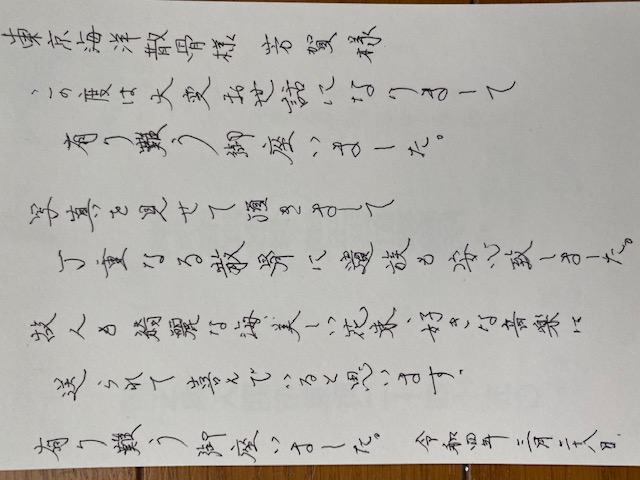 東京海洋散骨様 芳賀様
この度は大変お世話になりまして
有り難う御座いました。
写真を見せて頂きまして
丁重なる散骨に遺族も安心致しました。
故人も綺麗な海、美しい花束、好きな音楽に
送られて喜んでいると思います。
有り難う御座いました。 令和四年 二月二十八日